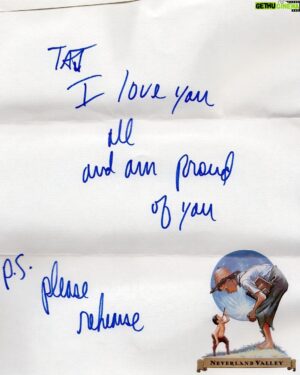 GETMU
TAJ
I love you
all
and am proud
of you
P.S.
please
rehearse
NEVERLAND VALLEY